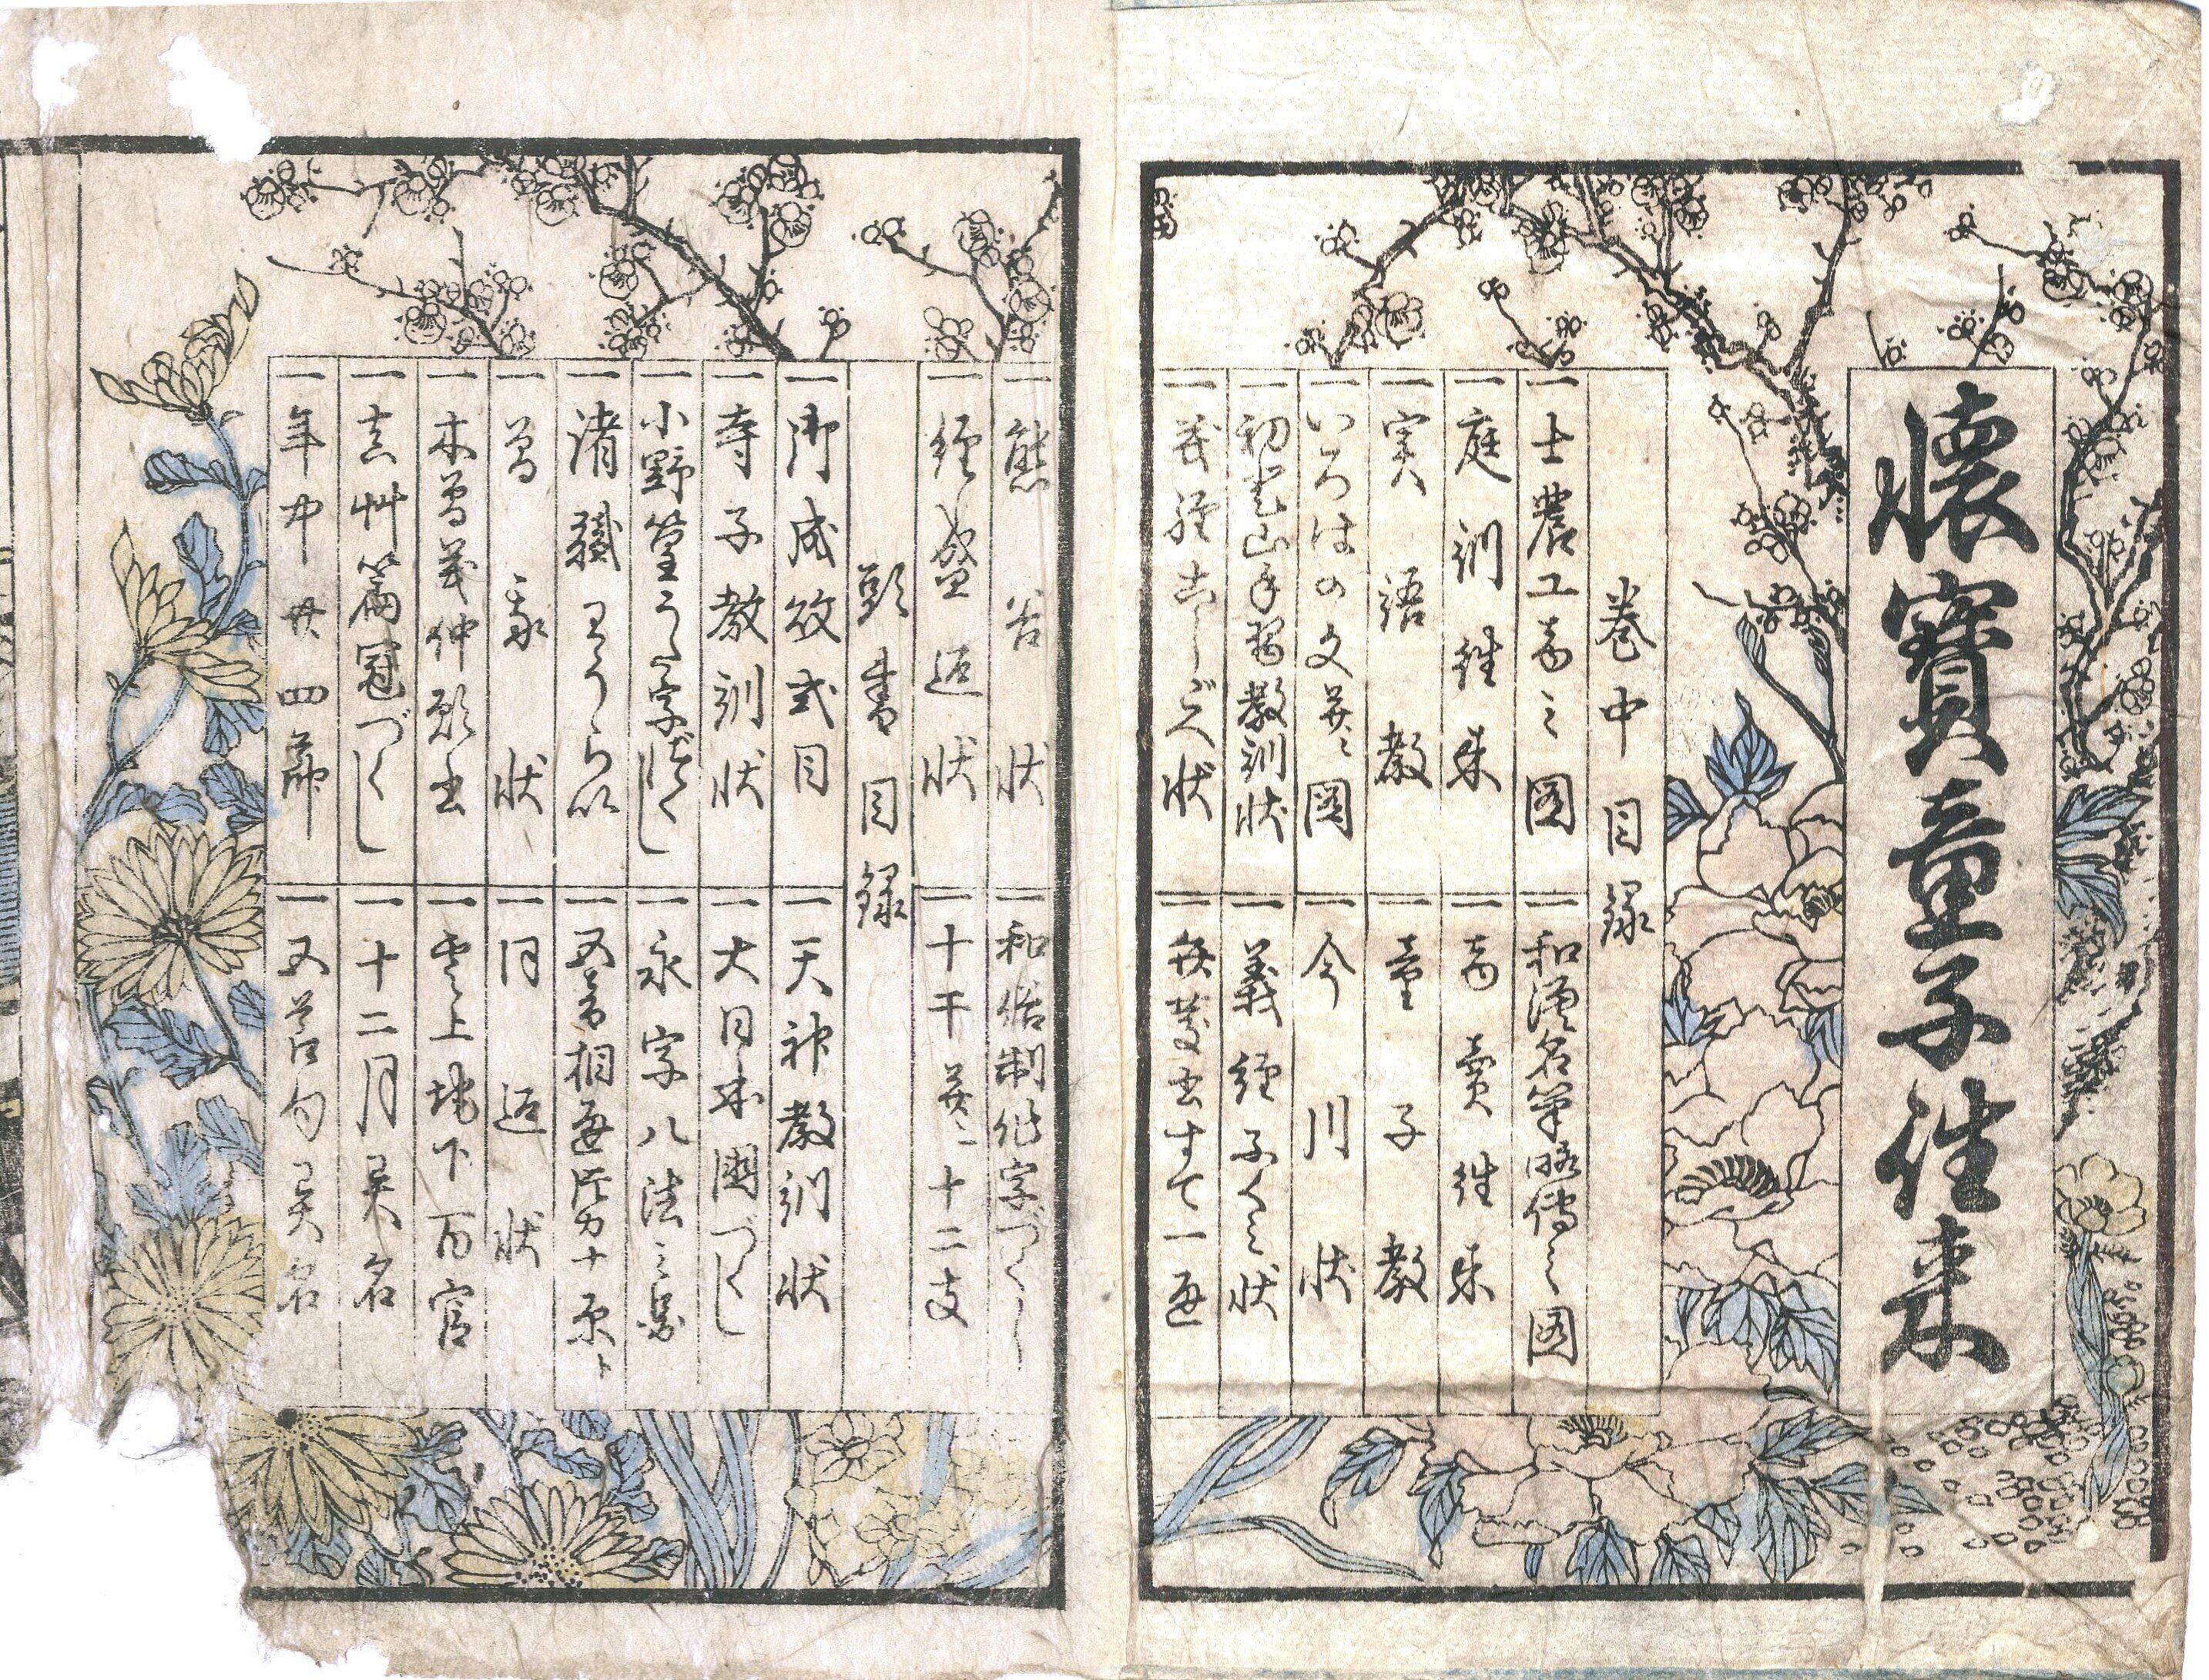 懐寳童子往来
巻中目録
一士農工商之図
一和漢名筆略傳之図
一庭訓徃来
一商賣徃来
一実語教
一童子教
一いろはの文并ニ図
一今川状
一初登山手習教訓状
一義経子くミ状
一義経こしごへ状
一弁慶書すて一通
一熊谷状
一和俗制作字づくし
一経盛返状
一十干并ニ十二支
頭書目録
一御成敗式目
一天神教訓状
一寺子教訓状
一大日本國づくし
一小野篁うた字づくし
一永字八法之事
一諸職
一曽我状
一同返状
一木曽義仲願書
一雲上地下百官
一吉艸篇冠づくし
一十二月異名
一年中廿四節
一又若句異名